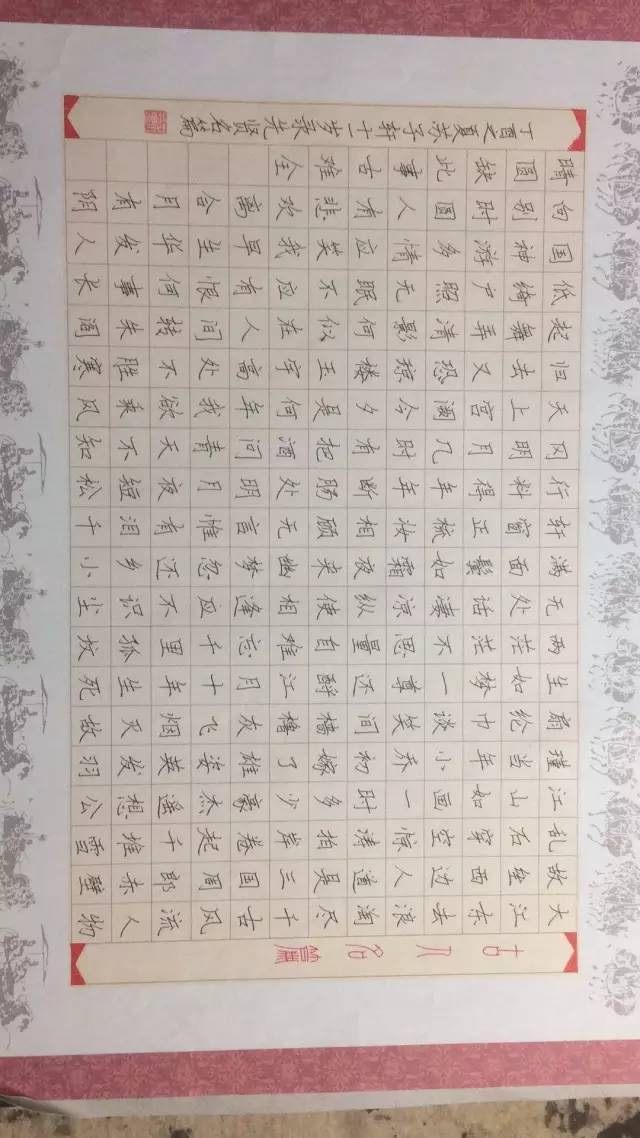 古人名篇
大江东去浪淘尽千古风流人物
故垒西边人道是三国周郎赤壁
乱石穿空惊涛拍岸卷起千堆雪
江山如画一时多少豪杰遥想公
瑾当年小乔初嫁了雄姿英发羽
扇纶巾谈笑间樯橹灰飞烟灭故
生如梦一尊还酹江月十年生死
两茫茫不思量自难忘千里孤坟
无处话凄凉纵使相逢应不识尘
满面鬓如霜夜来幽梦忽还乡小
轩窗正梳妆相顾无言惟有泪千
行料得年年断肠处明月夜短松
冈明月几时有把酒问青天不知
天上宫阙今夕是何年我欲乘风
归去又恐琼楼玉宇高处不胜寒
起舞弄清影何似在人间转朱阁
低绮户照无眠不应有恨何事长
国神游多情应笑我早生华发人
向别时圆人有悲欢离合月有阴
晴圆缺此事古难全
丁酉之夏苏子轩十一岁录先贤名篇